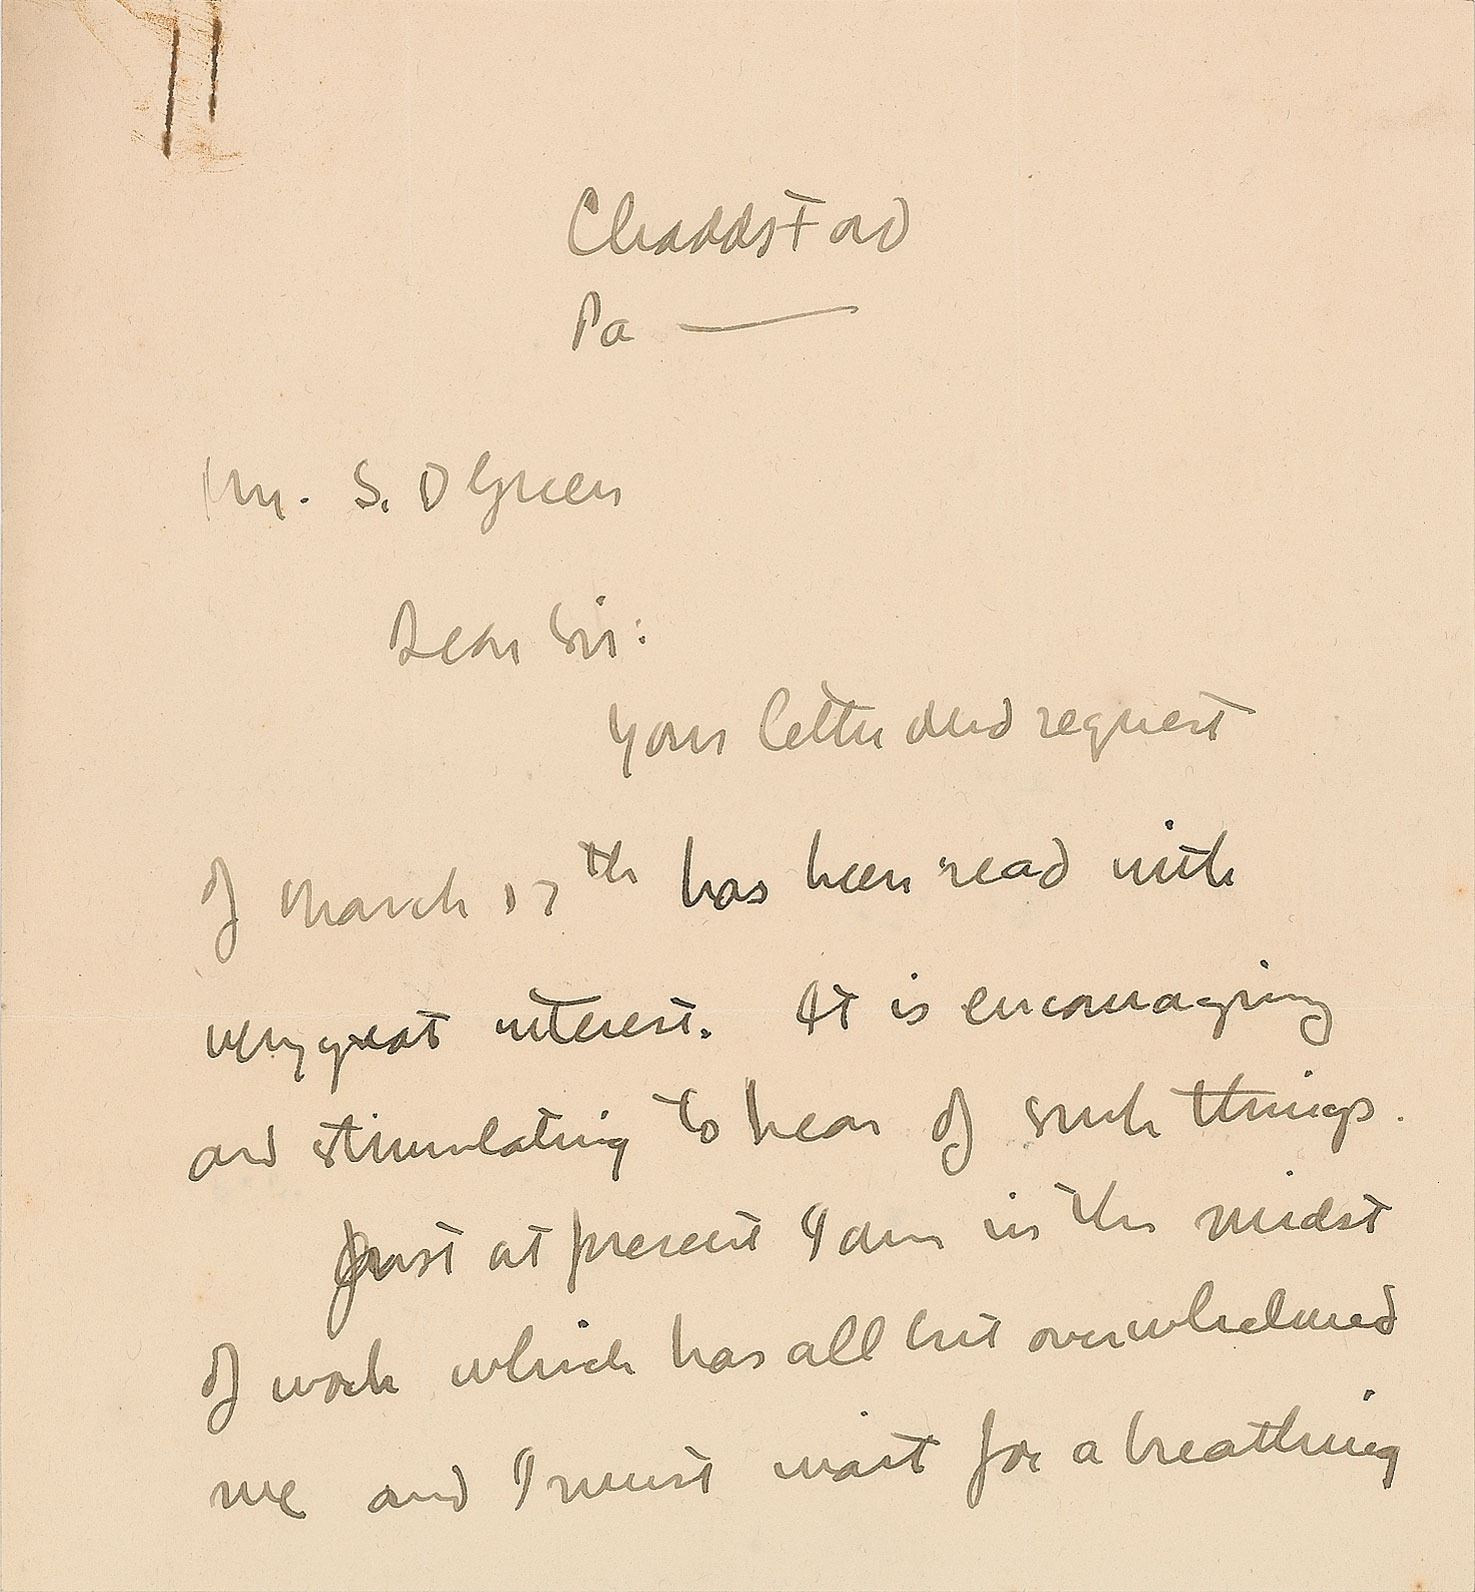 Chaddsford
Pa —
Mr. S. D Green
Dear Sir:
Your letter and request
of March 17th has been read with
very great interest. It is encouraging
and stimulating to hear of such things.
Just at present I am in the midst
of work which has all but overwhelmed
me and I must wait for a breathing